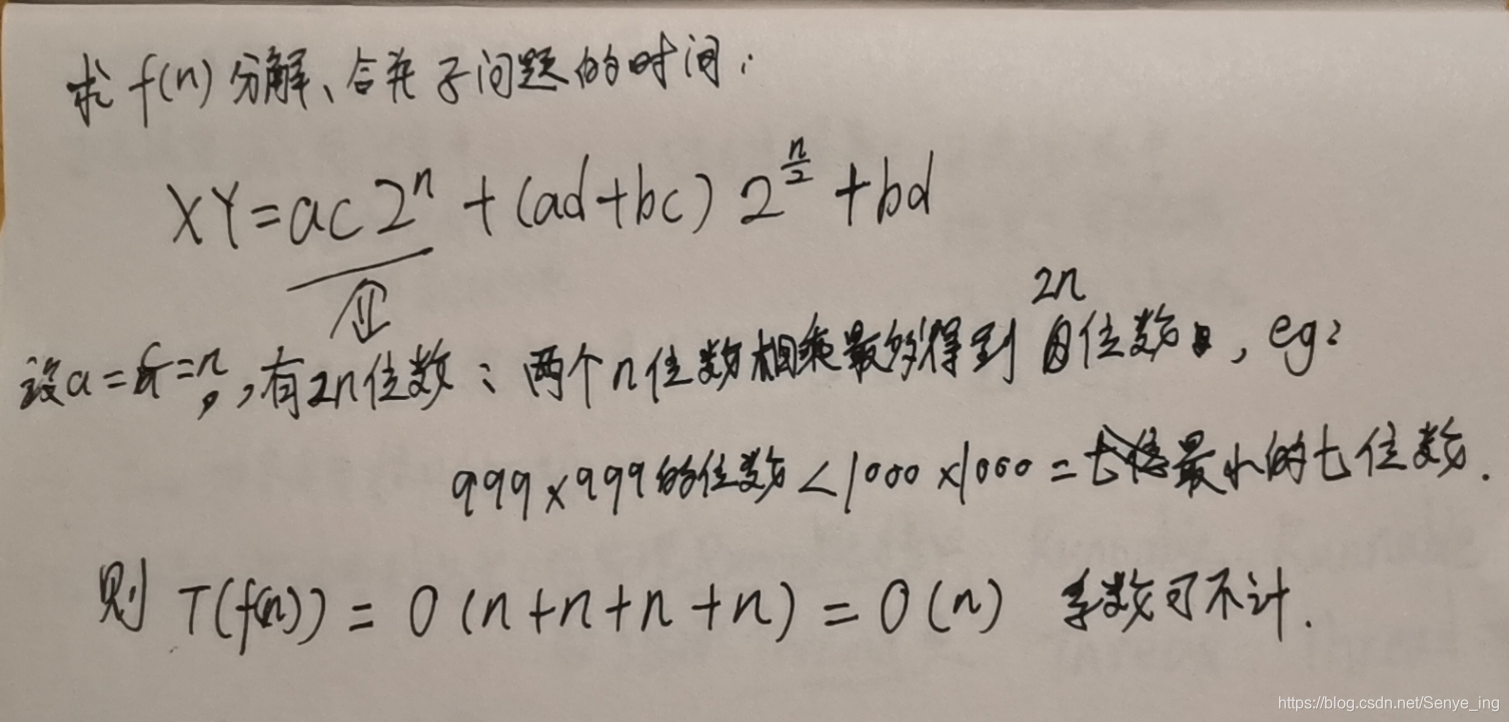 求 f(n) 分解、合并子问题的时间:
XY = ac 2^n + (ad+bc) 2^{n/2} + bd
设a=c=n, 有2n位数: 两个n位数相乘最多得到 2n 位数, eg:
999×999的位数 < 1000×1000 = 最小的七位数.
则 T(f(n)) = O(n+n+n+n) = O(n) 系数可不计.
https://blog.csdn.net/Senye_ing